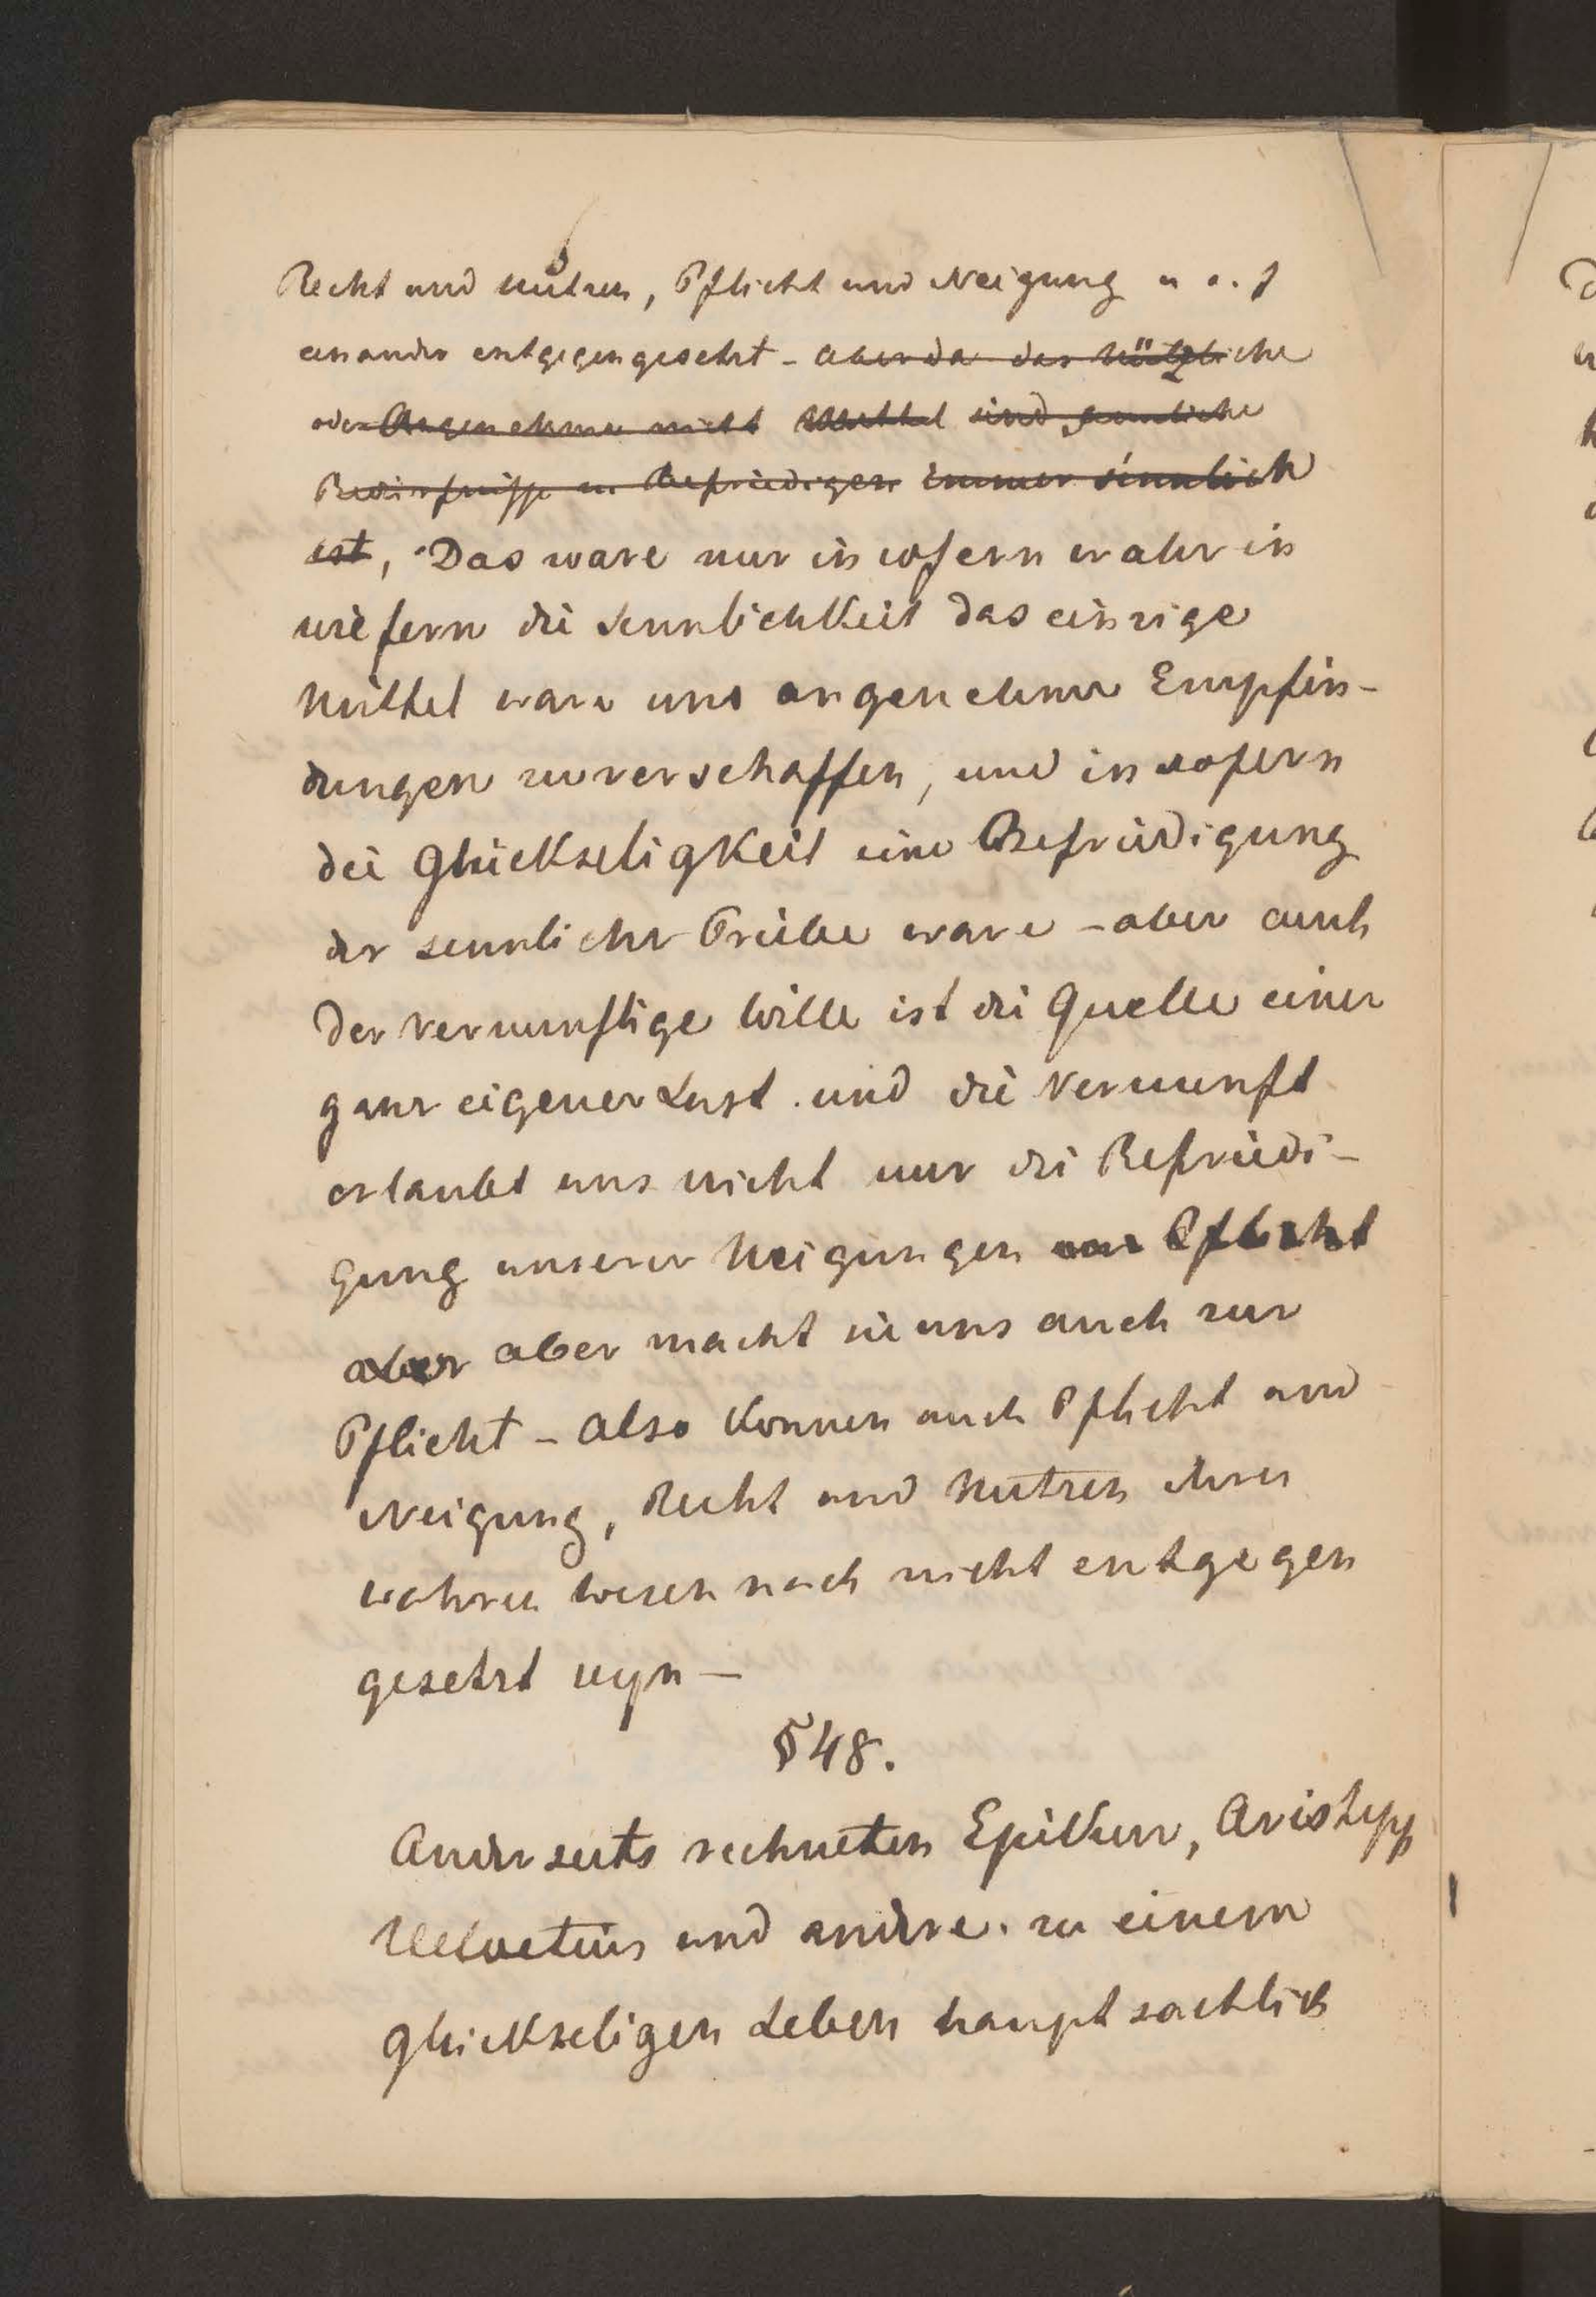 Recht und nutzen, Pflicht und Neigung u. s. f
einander entgegengesetzt - aber da das Nützliche
oder Angenehme nicht Mittel sind sinnliche
Bedürfnisse zu Befriedigen immer sinnlich
ist, Das ware nur in sofern wahr in
wiefern die Sinnlichkeit das einzige
Mittel ware uns angenehme Empfin-
dungen zu verschaffen, und in sofern
die Glückseligkeit eine Befriedigung
der sinnlicher Triebe ware - aber auch
der vernunftige Wille ist die Quelle einer
ganz eigener Lust und die Vernunft
erlaubt uns nicht nur die Befriedi-
gung unserer Neigungen zur Pflicht
aber aber macht sie uns auch zur
Pflicht - also konnen auch Pflicht und
Neigung, Recht und Nutzen ihren
wahren Wesen nach nicht entgegen
gesetzt seyn -
§ 48.
Anderseits rechneten Epikur, Aristipp
Helvetius und andere. zu einem
glückseligen Leben hauptsachlich